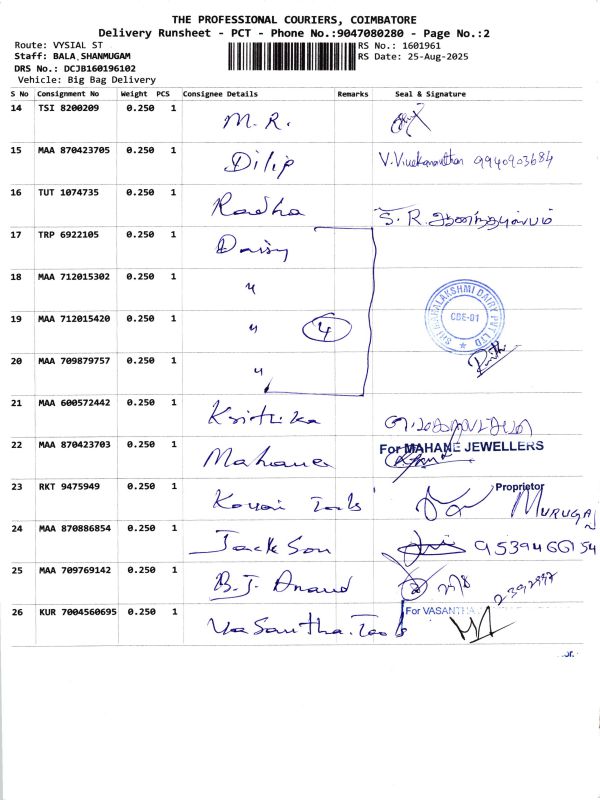 THE PROFESSIONAL COURIERS, COIMBATORE
Delivery Runsheet - PCT - Phone No.:9047080280 - Page No.:2
Route: VYSIAL ST
RS No.: 1601961
Staff: BALA SHANMUGAM
RS Date: 25-Aug-2025
DRS No.: DCJB160196102
Vehicle: Big Bag Delivery
S No Consignment No Weight PCS Consignee Details Remarks Seal & Signature
14 TSI 8200209 0.250 1 M. R.
15 MAA 870423705 0.250 1 Dilip V.Vivekananthan 9940903684
16 TUT 1074735 0.250 1 Radha S. R.
17 TRP 6922105 0.250 1 Daisy
18 MAA 712015302 0.250 1 "
19 MAA 712015420 0.250 1 " 4
20 MAA 709879757 0.250 1 "
SRI MAHALAKSHMI DAIRY PVT LTD
CBE-01
21 MAA 600572442 0.250 1 Krithika
22 MAA 870423703 0.250 1 Mahane For MAHANE JEWELLERS
Proprietor
23 RKT 9475949 0.250 1 Kovai Tools MURUGA
24 MAA 870886854 0.250 1 Jackson
25 MAA 709769142 0.250 1 B.J. Anand
26 KUR 7004560695 0.250 1 Vasantha Tools For VASANTHA